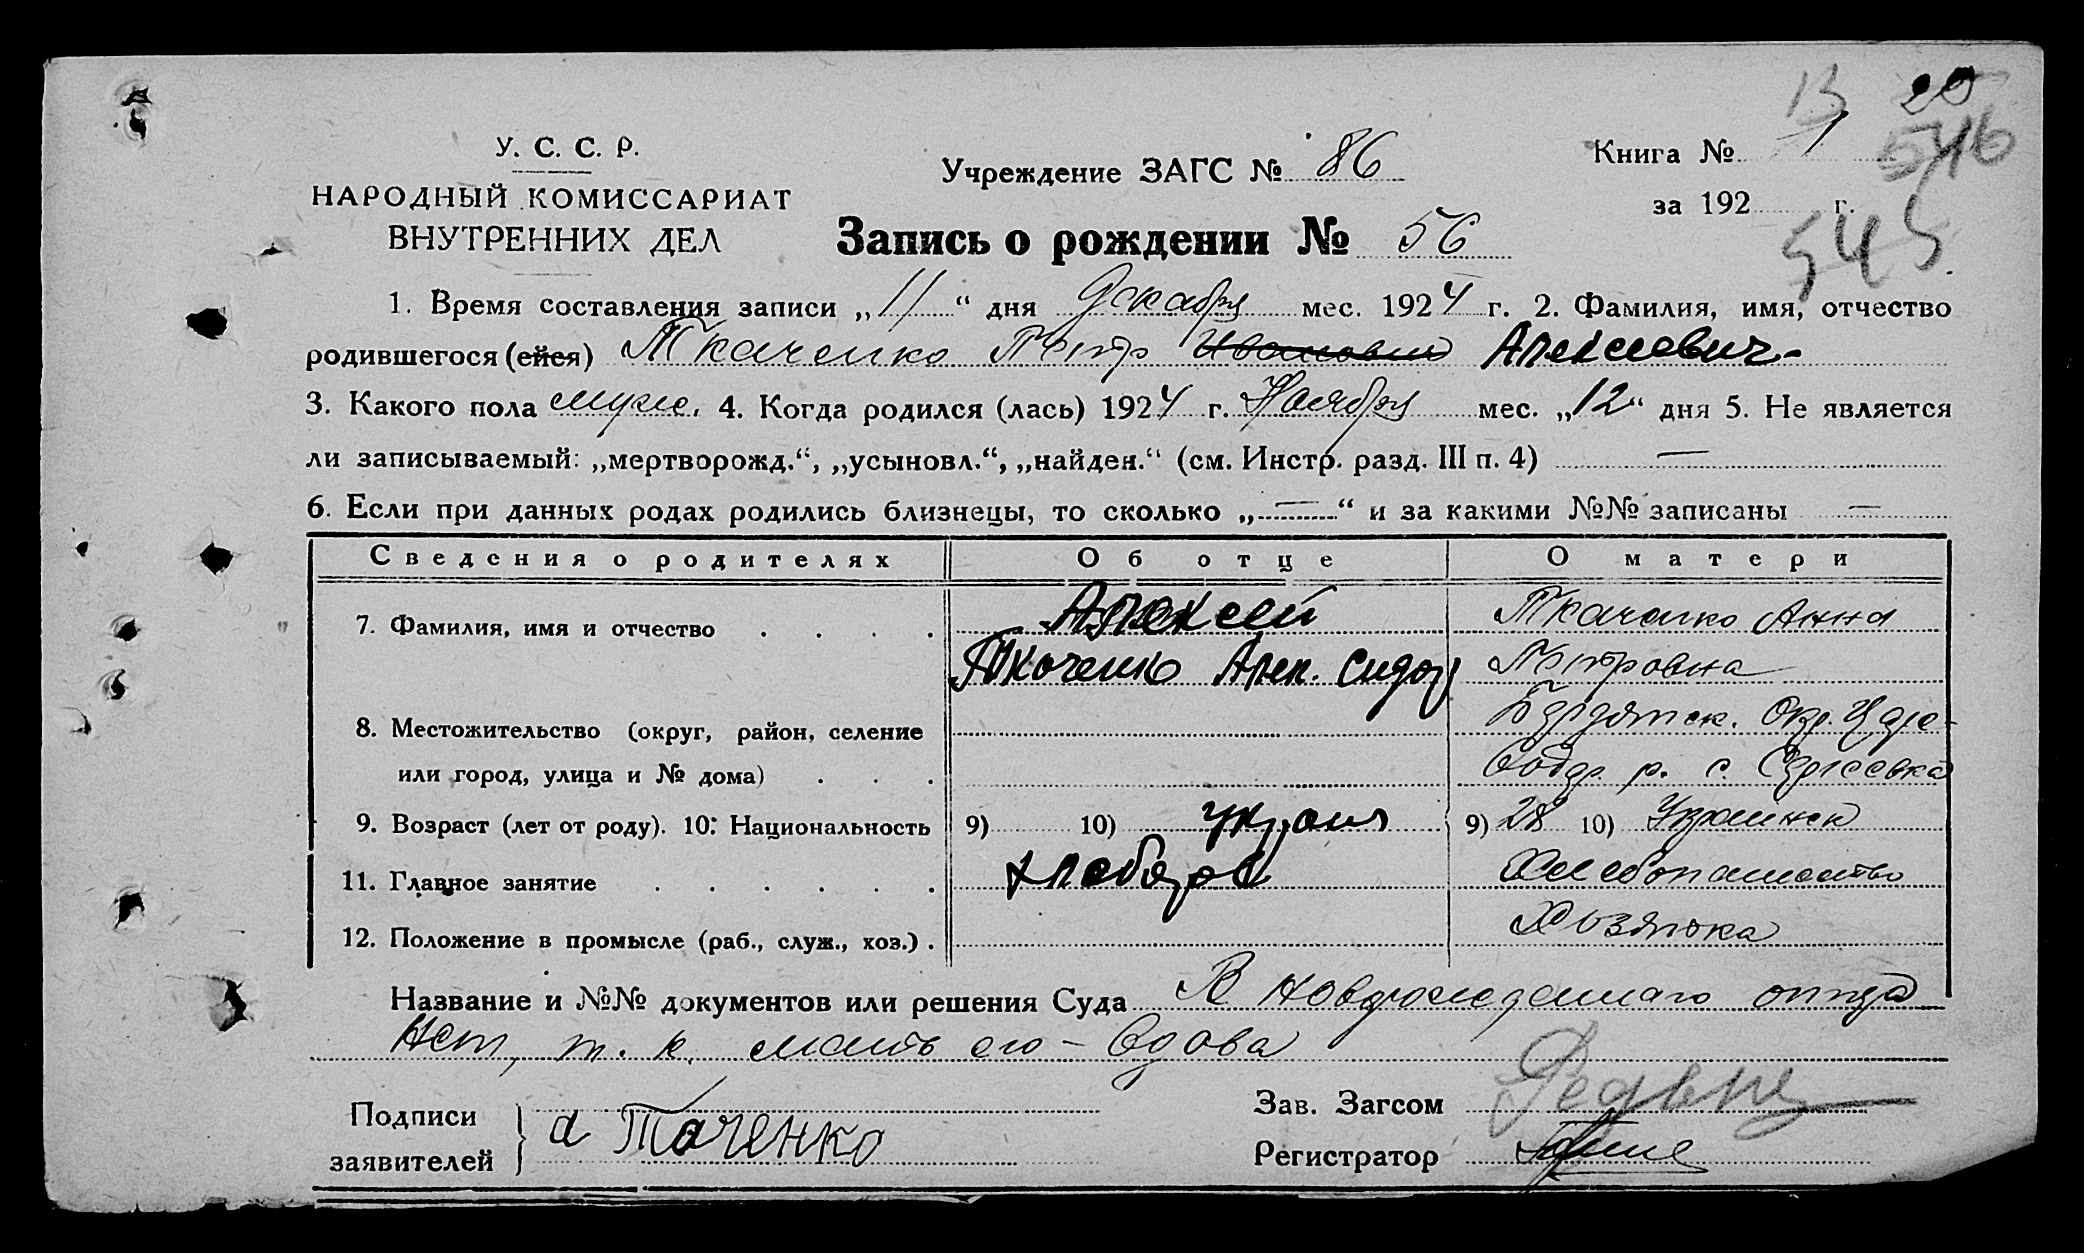 13 20
546
У. С. С. Р.
НАРОДНЫЙ КОМИССАРИАТ
ВНУТРЕННИХ ДЕЛ
Учреждение ЗАГС № 86
Книга № 1
за 192 г.
545
Запись о рождении № 56
1. Время составления записи „11“ дня Декабря мес. 1924 г. 2. Фамилия, имя, отчество
родившегося (ейся) Ткаченко Петр Иванович Алексеевич
3. Какого пола муже. 4. Когда родился (лась) 1924 г. Ноября мес. „12“ дня 5. Не является
ли записываемый: „мертворожд.“, „усыновл.“, „найден.“ (см. Инстр. разд. III п. 4) —
6. Если при данных родах родились близнецы, то сколько „—“ и за какими №№ записаны —
Сведения о родителях Об отце О матери
7. Фамилия, имя и отчество . . . . Алексей Ткаченко Анна
Ткоченко Алек. Сидор Петровна
8. Местожительство (округ, район, селение Бердянск. Окр. Царе-
или город, улица и № дома) . . . водр. р. с. Сергеевка
9. Возраст (лет от роду). 10. Национальность 9) 10) украин 9) 28 10) Украинск
11. Главное занятие . . . . . . хлебороб Хлебопашество
12. Положение в промысле (раб., служ., хоз.) . Хозяйка
Название и №№ документов или решения Суда В новорожденного отца
нет, т. к. мать его – вдова
Подписи
заявителей } а Таченко
Зав. Загсом
Регистратор